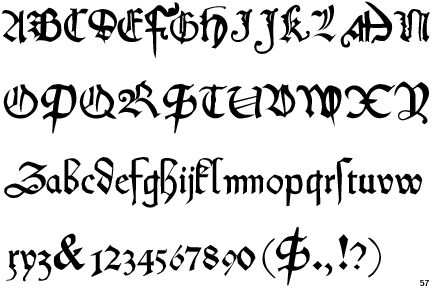 ABCDEFGHIJKLMN
OPQRSTUVWXY
Zabcdefghijklmnopqrſtuvw
xyz&1234567890($.,!?)
57